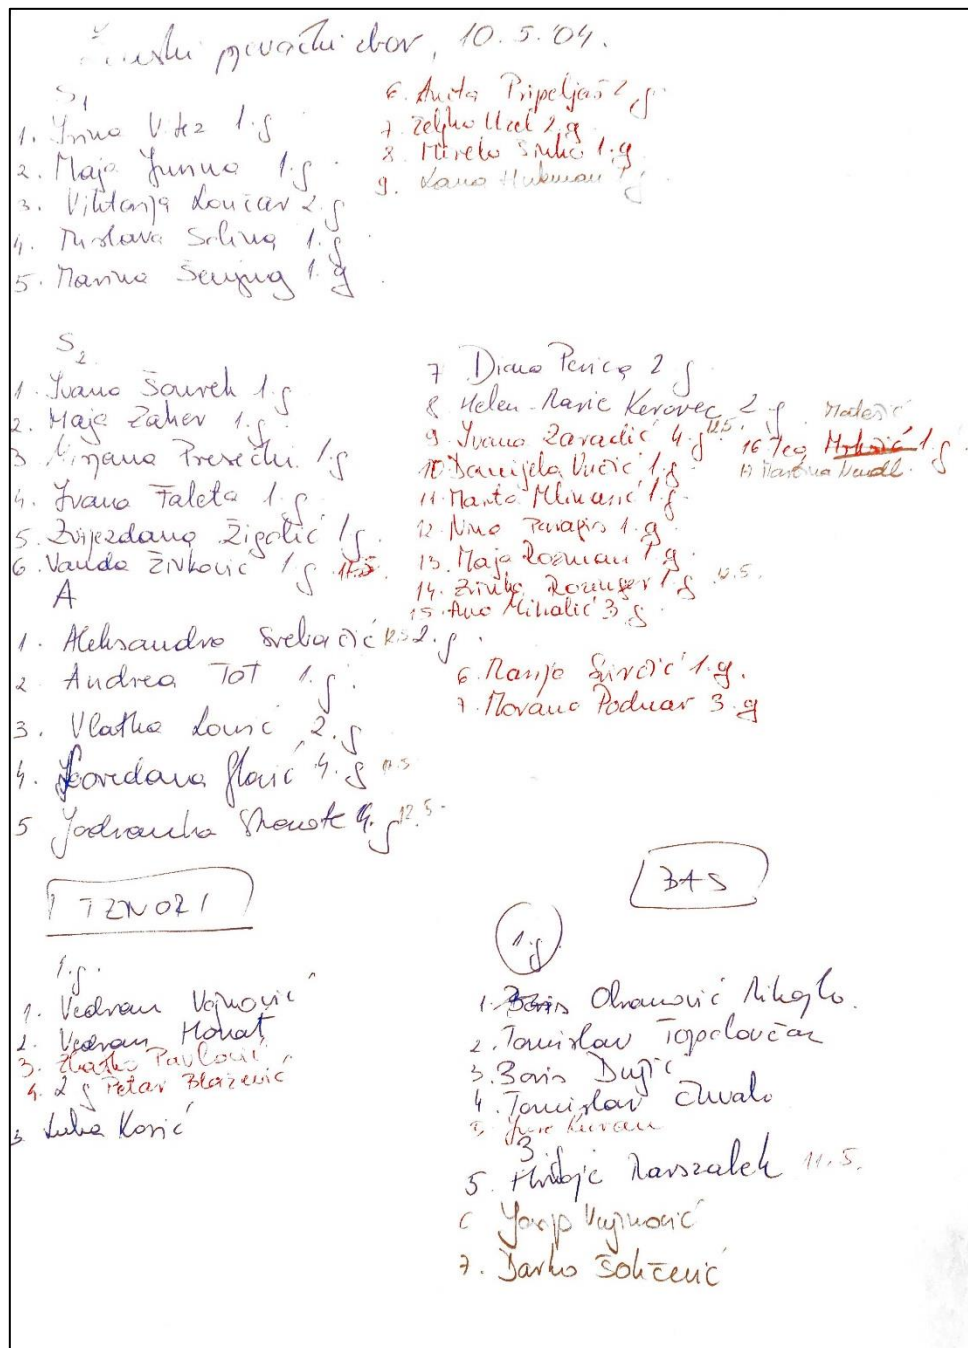 pjevački zbor, 10. 5. '04.
S1
1. Irina Vitez 1. g
2. Maja 1. g
3. Viktorija Lončar 2. g
4. Mislava 1. g
5. Marina 1. g
6. Anita Pripeljaš 2 g
7. Željka 2. g
8. Mirela Sinko 1. g
9. Lana Hukman 1 g
S2
1. Ivana Šourek 1. g
2. Maja Zaher 1. g
3 Mirjana Presečki 1. g
4. Ivana Faleta 1. g
5. Zvijezdana Žigolić 1 g
6. Vanda Živković 1 g 12.5
7 Diana Perica 2 g
8 Helen-Marie Kerovec 2. g
9. Ivana Zaradić 4. g 12.5.
10. Danijela Vučić 1. g
11. Marta Mlinarić 1. g
12. Nina 1. g
13. Maja Rozman 1 g
14. Zrinka 1 g 12.5.
15. Ana Mihalić 3 g
Matešić
16 Tea 1. g
17 Martina
A
1. Aleksandra Srebačić 12.5 2. g
2 Andrea Tot 1. g.
3. Vlatka 2. g
4. Loredana Glavić 4. g 12.5
5 Jadranka 4. g 12.5.
6. Marija 1. g.
7. Morana Podnar 3. g
TENORI
1. g.
1. Vedran Vojnović
2. Vedran Monat
3. Zlatko Pavlović
4. 2 g Petar Blažević
3 Luka Kosić
BAS
1. g
1. Boris Obranović Mihajlo
2. Tomislav Topolovčan
3. Boris Dujić
4. Tomislav Čuvalo
5.
3 g
5. Hrvoje Marszalek 11. 5.
6 Josip Vojnović
7. Darko Šokčević